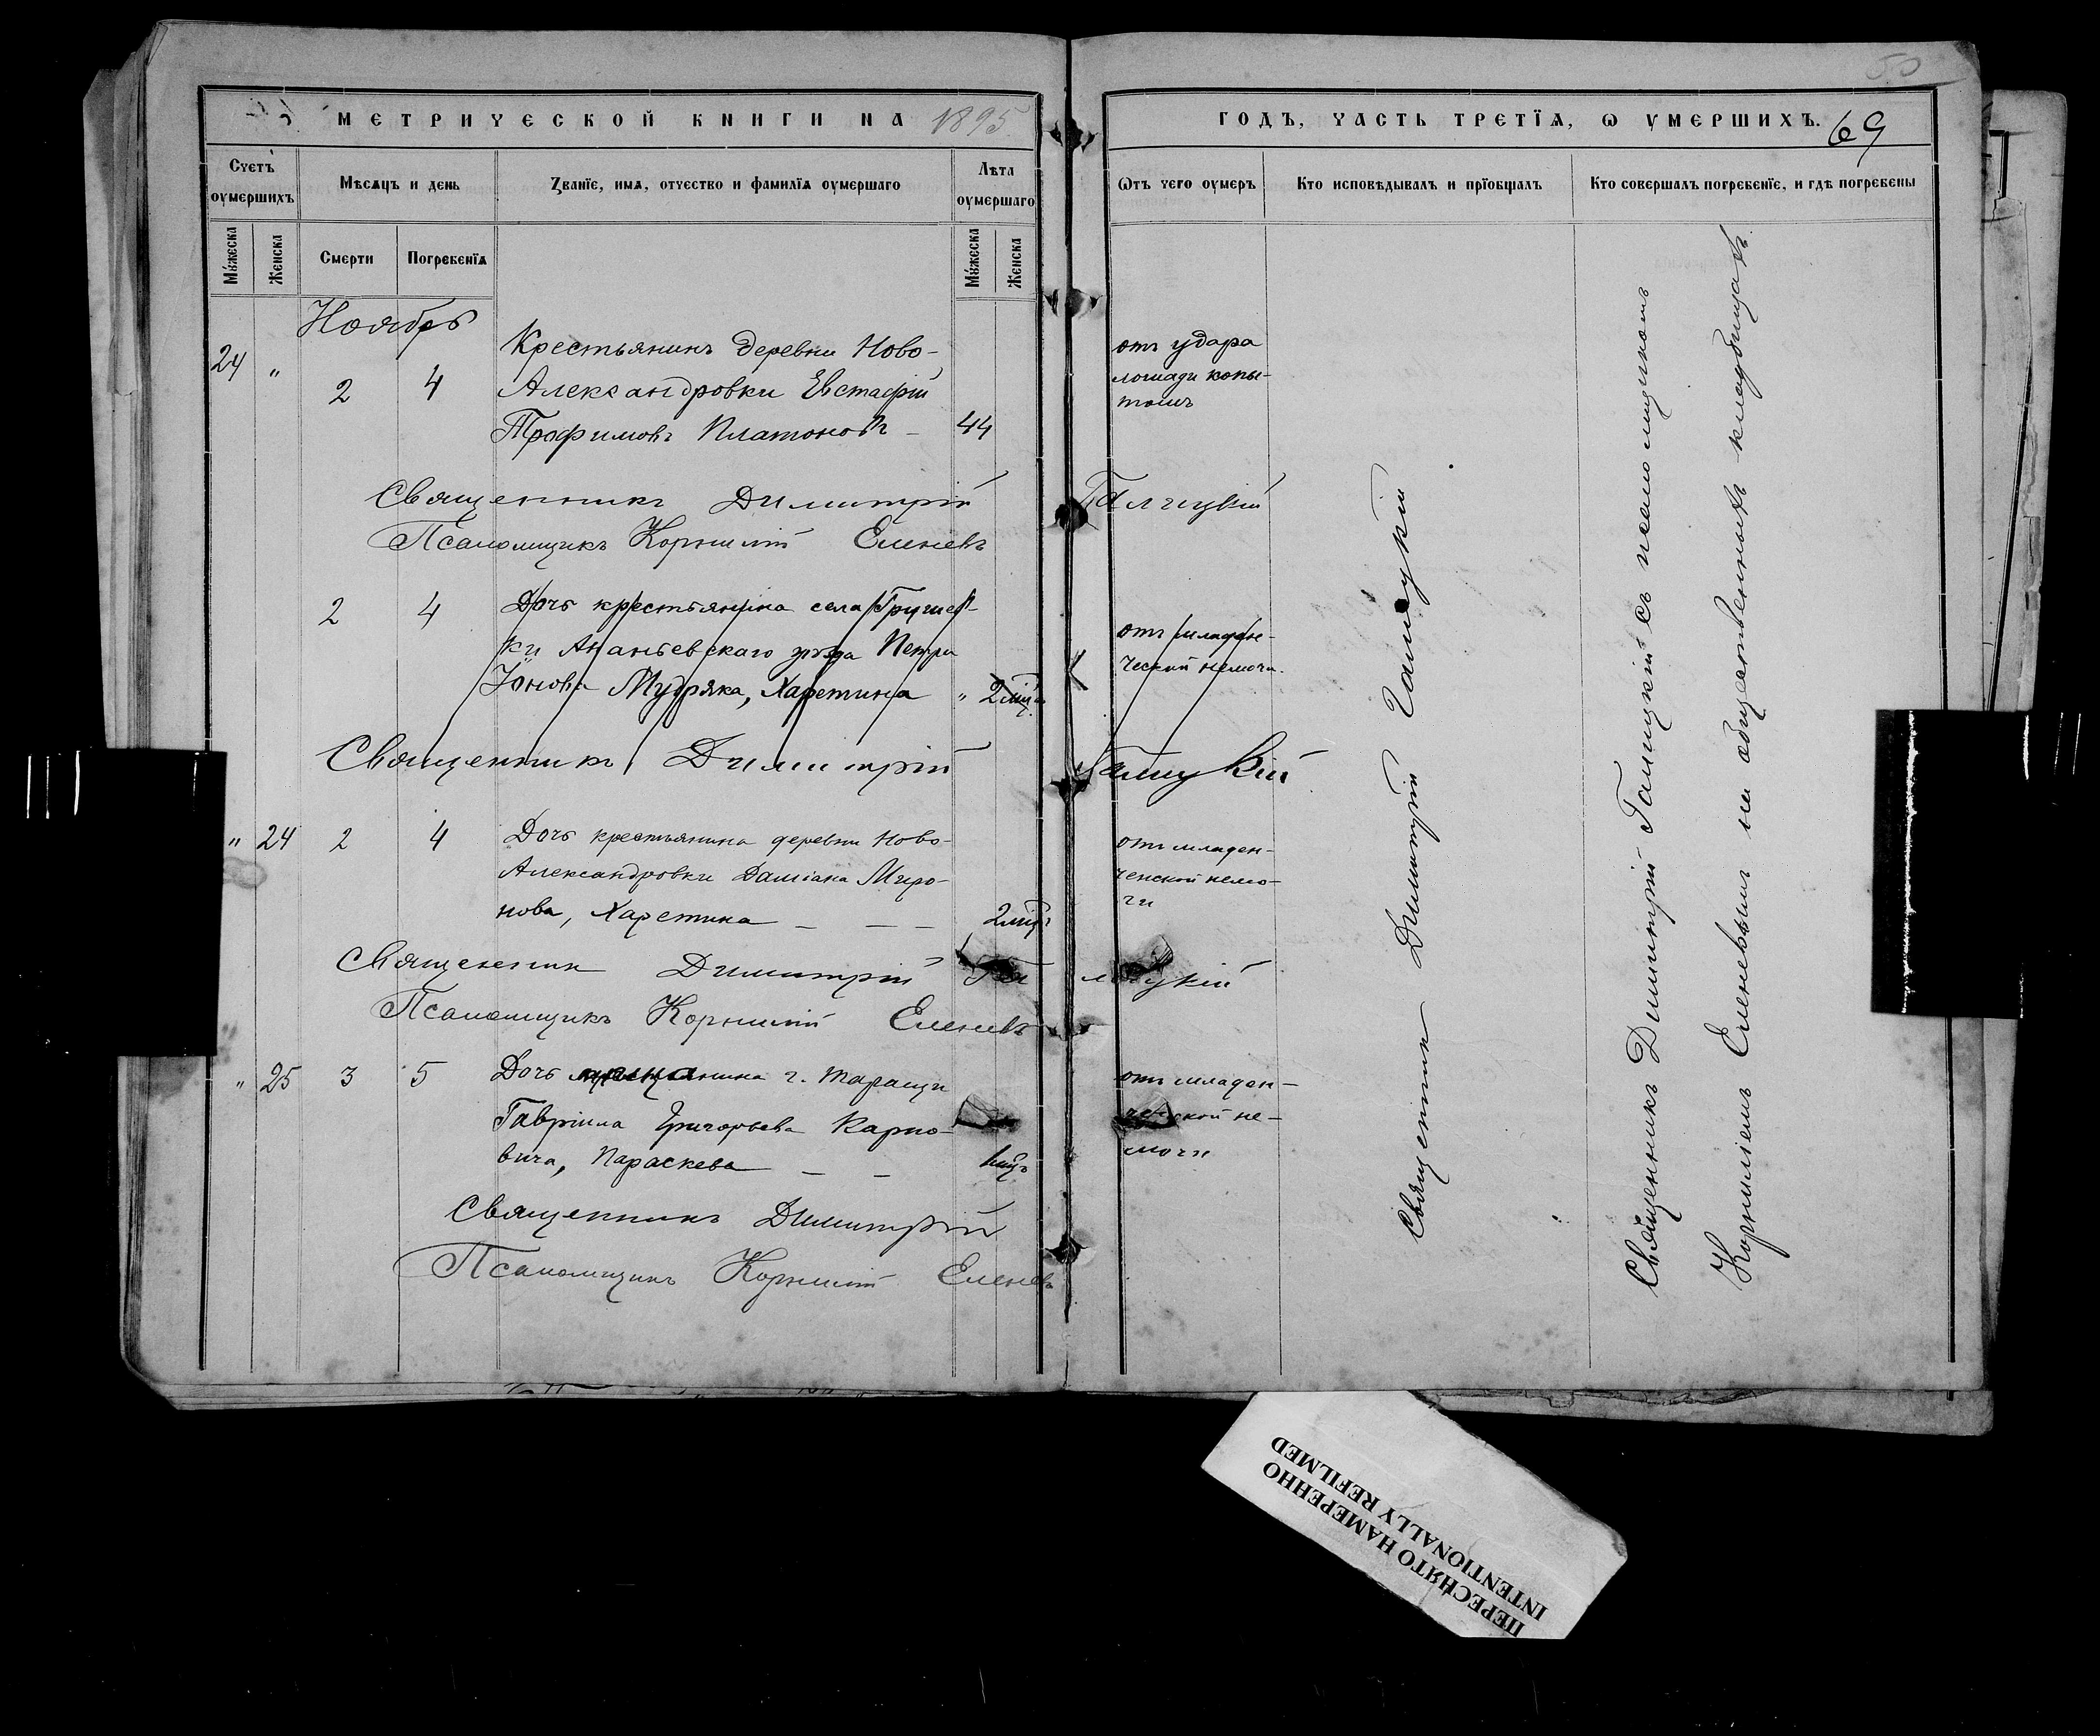 50
МЕТРИЧЕСКОЙ КНИГИ НА 1895
ГОДЪ, ЧАСТЬ ТРЕТІѦ, Ѡ УМЕРШИХЪ. 69
Счетъ оумершихъ
Мѣсѧцъ и день
Званїе, имѧ, отчество и фамилїѧ оумершаго
Лѣта оумершаго
Ѿтъ чего оумеръ
Кто исповѣдывалъ и прїобщалъ
Кто совершалъ погребенїе, и гдѣ погребены
Мꙋжеска
Женска
Смерти
Погребенїѧ
Мꙋжеска
Женска
Ноябрь
24 " 2 4
Крестьянинъ деревни Ново-
Александровки Евстафій
Трофимовъ Платоновъ – 44
отъ удара
лошади копы-
томъ
Священникъ Димитрій Галицкій
Псаломщикъ Корнилій Еленевъ
2 4
Дочь крестьянина села Грушев-
ки Ананьевскаго уѣзда Петра
Іонова Мудряка, Харетина " 2 мѣс.
отъ младен-
ческой немочи.
Священникъ Димитрій Галицкій
" 24 2 4
Дочь крестьянина деревни Ново-
Александровки Даміана Миро-
нова, Харетина – – – 2 мѣс
отъ младен-
ческой немо-
чи
Священник Димитрій Галицкій
Псаломщикъ Корнилій Еленевъ
" 25 3 5
Дочь мѣщанина г. Таращи
Гавріила Григорьева Карпо-
вича, Параскева – –
отъ младен-
ческой не-
мочи
Священникъ Димитрій
Псаломщикъ Корнилій Еленевъ
Священник Димитрій Галицкій
Священникъ Димитрій Галицкій съ псаломщикомъ
Корниліемъ Еленевымъ на общественныхъ кладбищахъ
ПЕРЕСНЯТО НАМЕРЕННО
INTENTIONALLY REFILMED